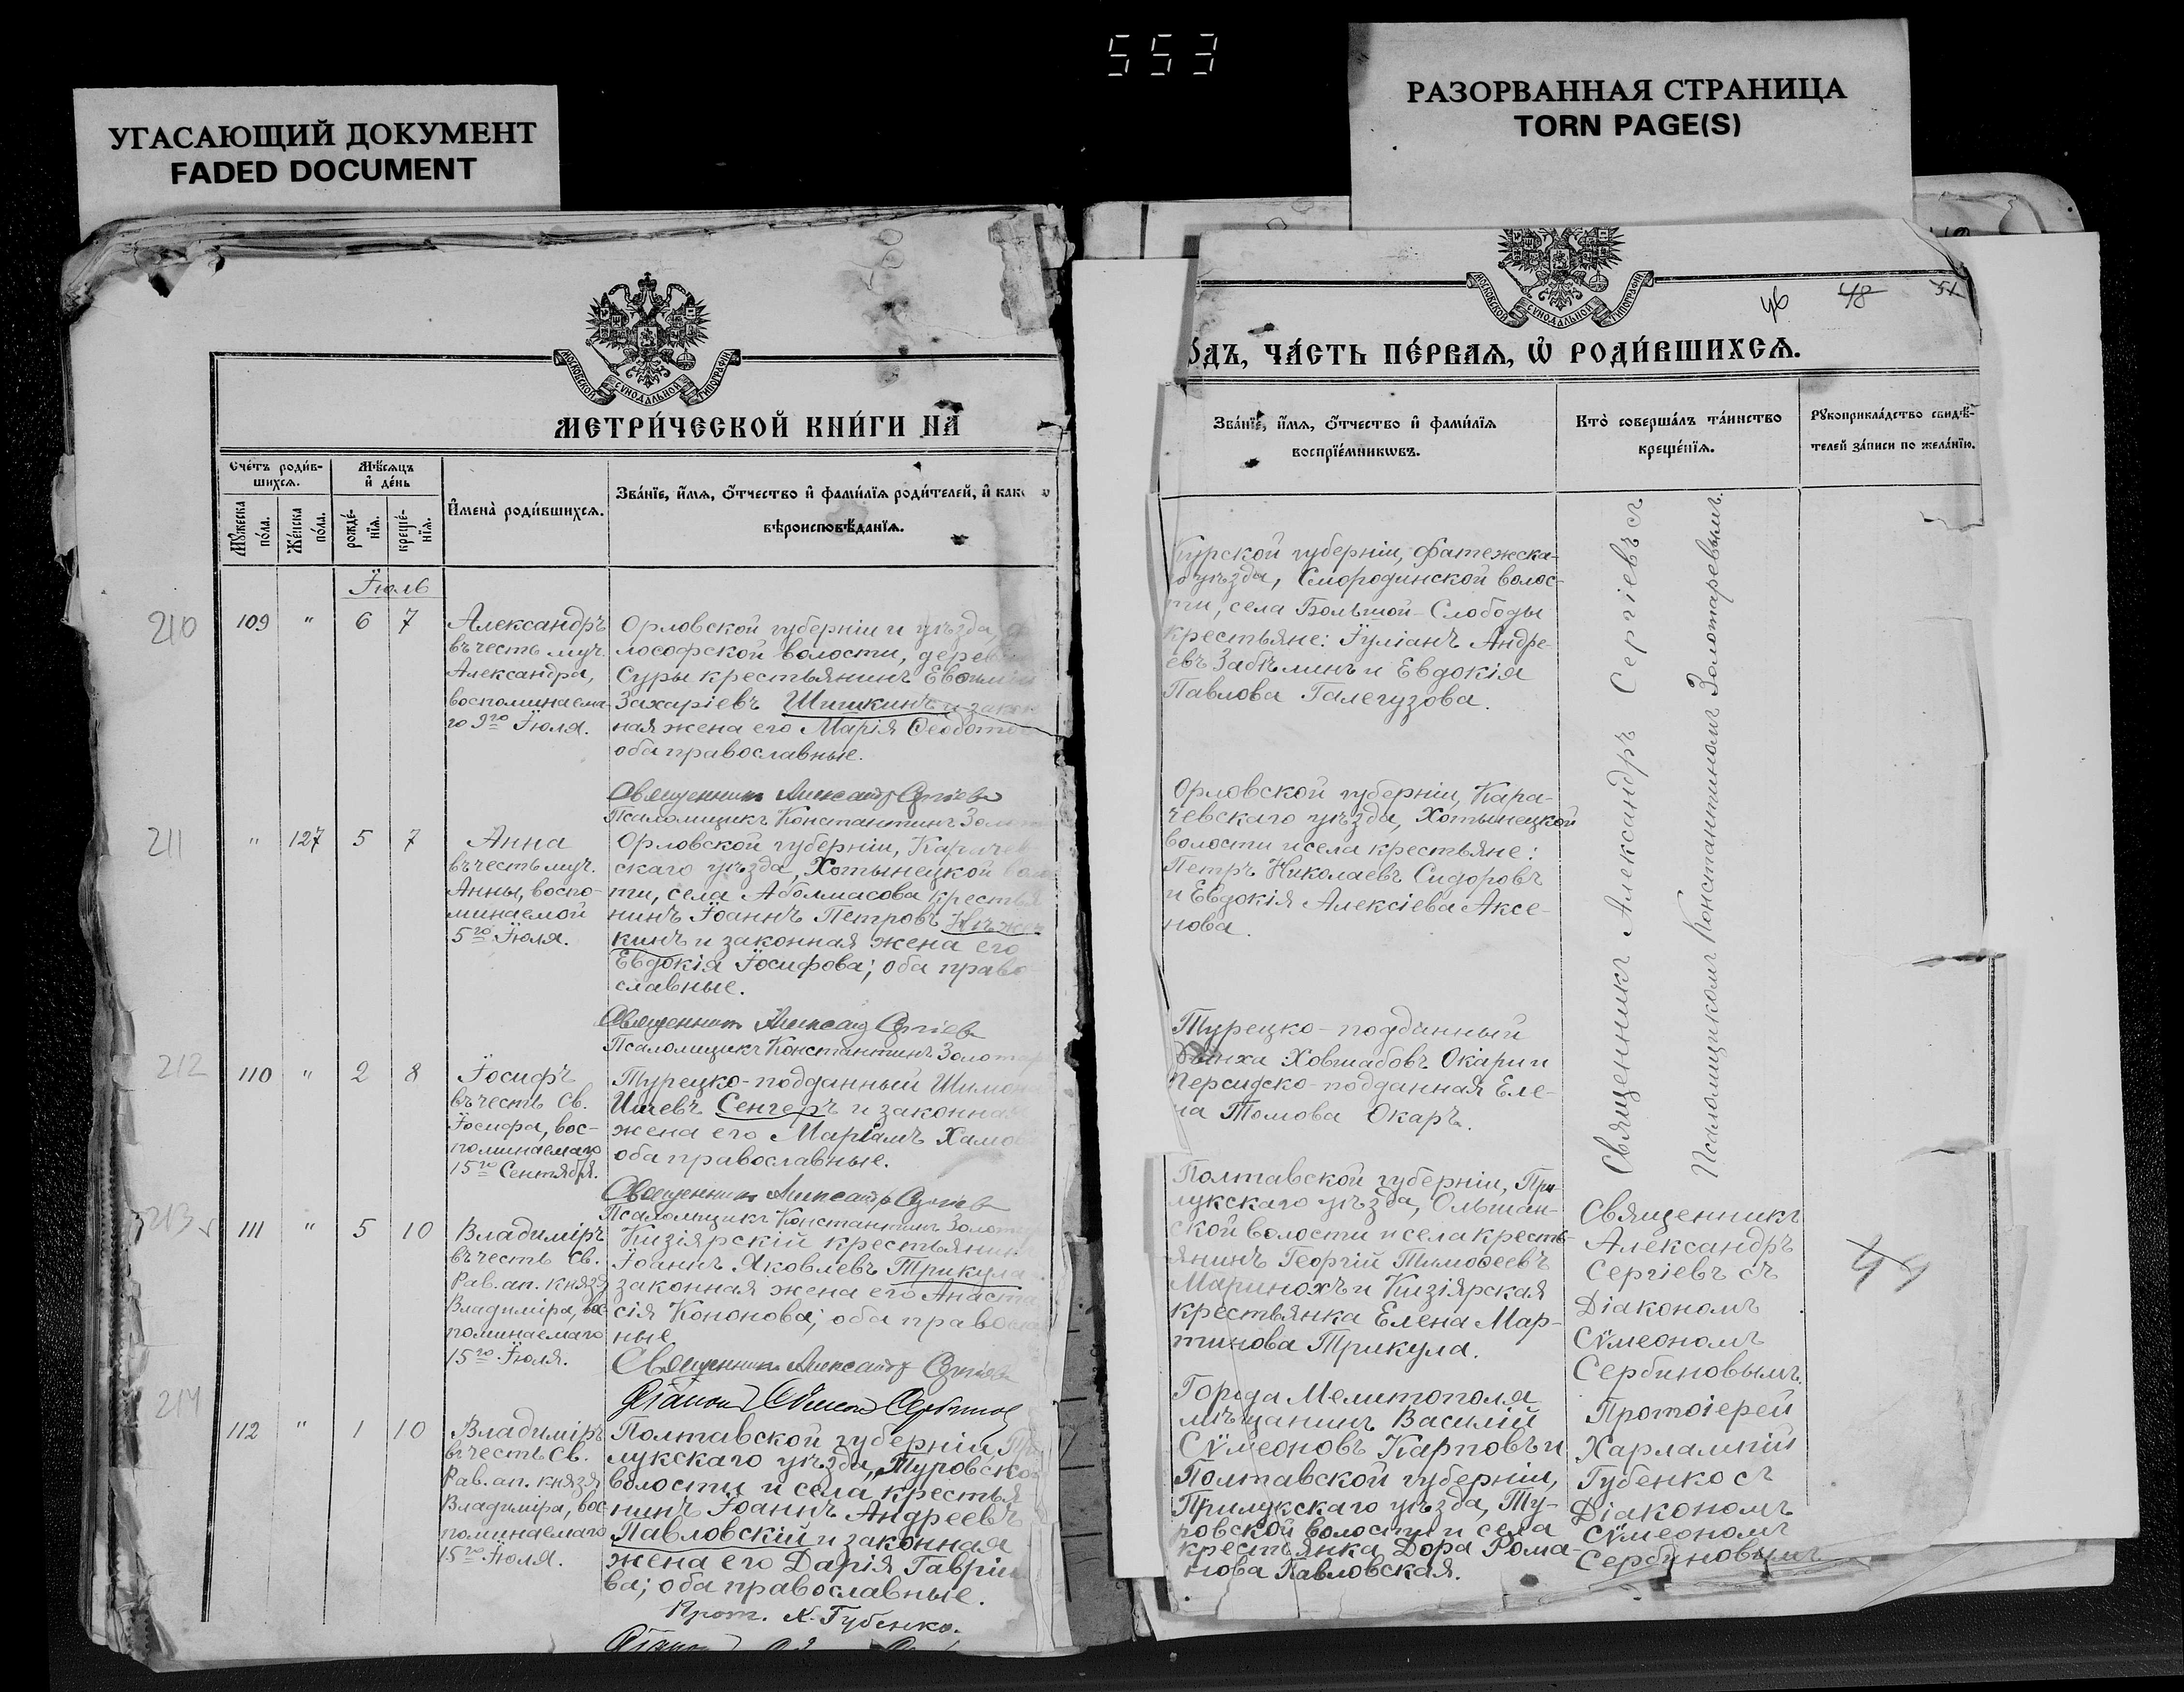 553
УГАСАЮЩИЙ ДОКУМЕНТ
FADED DOCUMENT
РАЗОРВАННАЯ СТРАНИЦА
TORN PAGE(S)
МОСКОВСКОЙ СУНОДАЛЬНОЙ ТИПОГРАФІИ
МЕТРИ́ЧЕСКОЙ КНИ́ГИ НА
Сче́тъ роди́в-
шихсѧ.
Мѣ́сѧцъ
и҆ де́нь
Мꙋ́жеска
по́ла.
Же́нска
по́ла.
рожде́-
нїѧ.
креще́-
нїѧ.
И҆мена̀ роди́вшихсѧ.
Зва́нїе, и҆́мѧ, ѻ҆́тчество и҆ фами́лїѧ роди́телей, и҆ как
вѣроисповѣ́данїѧ.
Іюль
210
109 " 6 7
Александръ
въ честь муч.
Александра,
воспоминаема-
го 9го Іюля.
Орловской губерніи и уѣзда,
лософской волости, дерев
Суры крестьянинъ Евѳимій
Захаріевъ Шишкинъ и закон
ная жена его Марія Ѳеодото
оба православные.
Священникъ Александръ Сергіевъ
Псаломщикъ Константинъ Золот
211
" 127 5 7
Анна
въ честь муч.
Анны, воспо-
минаемой
5го Іюля.
Орловской губерніи, Карачев
скаго уѣзда, Хотынецкой воло
ти, села Аболмасова крестья
нинъ Іоаннъ Петровъ
кинъ и законная жена его
Евдокія Іосифова; оба право
славные.
Священникъ Александръ Сергіевъ
Псаломщикъ Константинъ Золотар
212
110 " 2 8
Іосифъ
въ честь св.
Іосифа, вос-
поминаемаго
15го Сентября.
Турецко-подданный Шимон
Ишевъ Сенгеръ и законная
жена его Маріамъ Хамо
оба православные.
Священникъ Александръ Сергіевъ
Псаломщикъ Константинъ Золотар
213
111 " 5 10
Владиміръ
въ честь св.
Рав. ап. князя
Владиміра, вос-
поминаемаго
15го Іюля.
Кизіярскій крестьянин
Іоаннъ Яковлевъ Трикула
законная жена его Анаста
сія Кононова; оба правосла
ные
Священникъ Александръ Сергіевъ
Діаконъ Симеонъ Сербинов
214
112 " 1 10
Владиміръ
въ честь св.
Рав. ап. князя
Владиміра, вос-
поминаемаго
15го Іюля.
Полтавской губерніи, При
лукскаго уѣзда, Туровской
волости и села крестья
нинъ Іоаннъ Андреевъ
Павловскій и законная
жена его Дарія Гавріи
ва; оба православные.
Прот. Х. Губенко.
МОСКОВСКОЙ СУНОДАЛЬНОЙ ТИПОГРАФІИ
46 48 51
О́ДЪ, ЧА́СТЬ ПЕ́РВАѦ, Ѡ҆ РОДИ́ВШИХСѦ.
Зва́нїе, и҆́мѧ, ѻ҆́тчество и҆ фами́лїѧ
воспрїе́мникѡвъ.
Кто̀ соверша́лъ та́инство
креще́нїѧ.
Рꙋкоприкла́дство свидѣ́-
телей за́писи по жела́нїю.
Курской губерніи, Фатежска-
го уѣзда, Смородинской волос-
ти, села Большой-Слободы
крестьяне: Іуліанъ Андре-
евъ Забѣминъ и Евдокія
Павлова Галегузова.
Орловской губерніи, Кара-
чевскаго уѣзда, Хотынецкой
волости и села крестьяне:
Петръ Николаевъ Сидоровъ
и Евдокія Алексіева Аксе-
нова.
Турецко-подданный
Ховшабовъ Окари и
Персидско-подданная Еле-
на Томова Окаръ.
Священникъ Александръ Сергіевъ съ
Псаломщикомъ Константиномъ Золотаревымъ.
Полтавской губерніи, При-
лукскаго уѣзда, Ольшан-
ской волости и села кресть-
янинъ Георгій Тимоѳеевъ
Маринохъ и Кизіярская
крестьянка Елена Мар-
тинова Трикула.
Священникъ
Александръ
Сергіевъ съ
Діакономъ
Сѵмеономъ
Сербиновымъ.
Города Мелитополя
мѣщанинъ Василій
Сѵмеоновъ Карповъ и
Полтавской губерніи,
Прилукскаго уѣзда, Ту-
ровской волости и села
крестьянка Дора Рома-
нова Павловская.
Протоіерей
Харлампій
Губенко съ
Діакономъ
Сѵмеономъ
Сербиновымъ